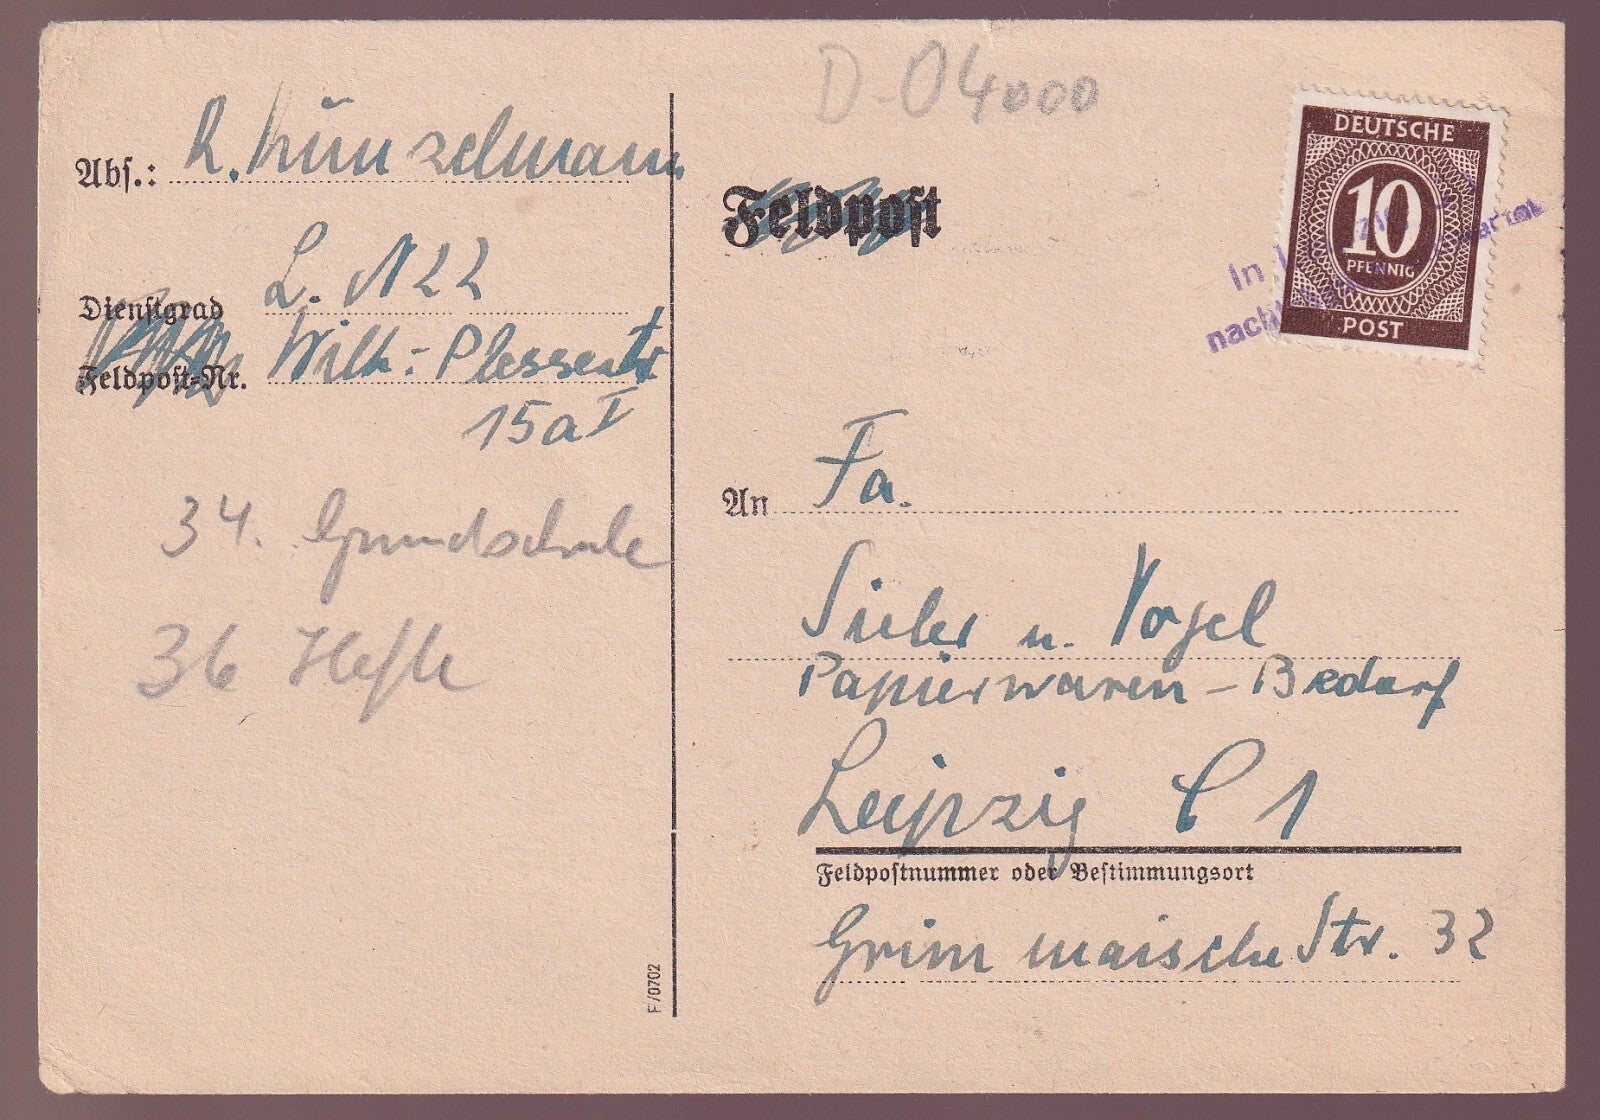 D-04000
Abs.: R. Künzelmann
L. N22
Dienstgrad
Feldpost-Nr. Wilh.-Plessestr
15a I
34. Grundschule
36 Hefte
Feldpost
DEUTSCHE
10
PFENNIG
POST
In
An Fa.
Sieler u. Vogel
Papierwaren-Bedarf
Leipzig C1
Feldpostnummer oder Bestimmungsort
Grimmaische Str. 32
F/0702